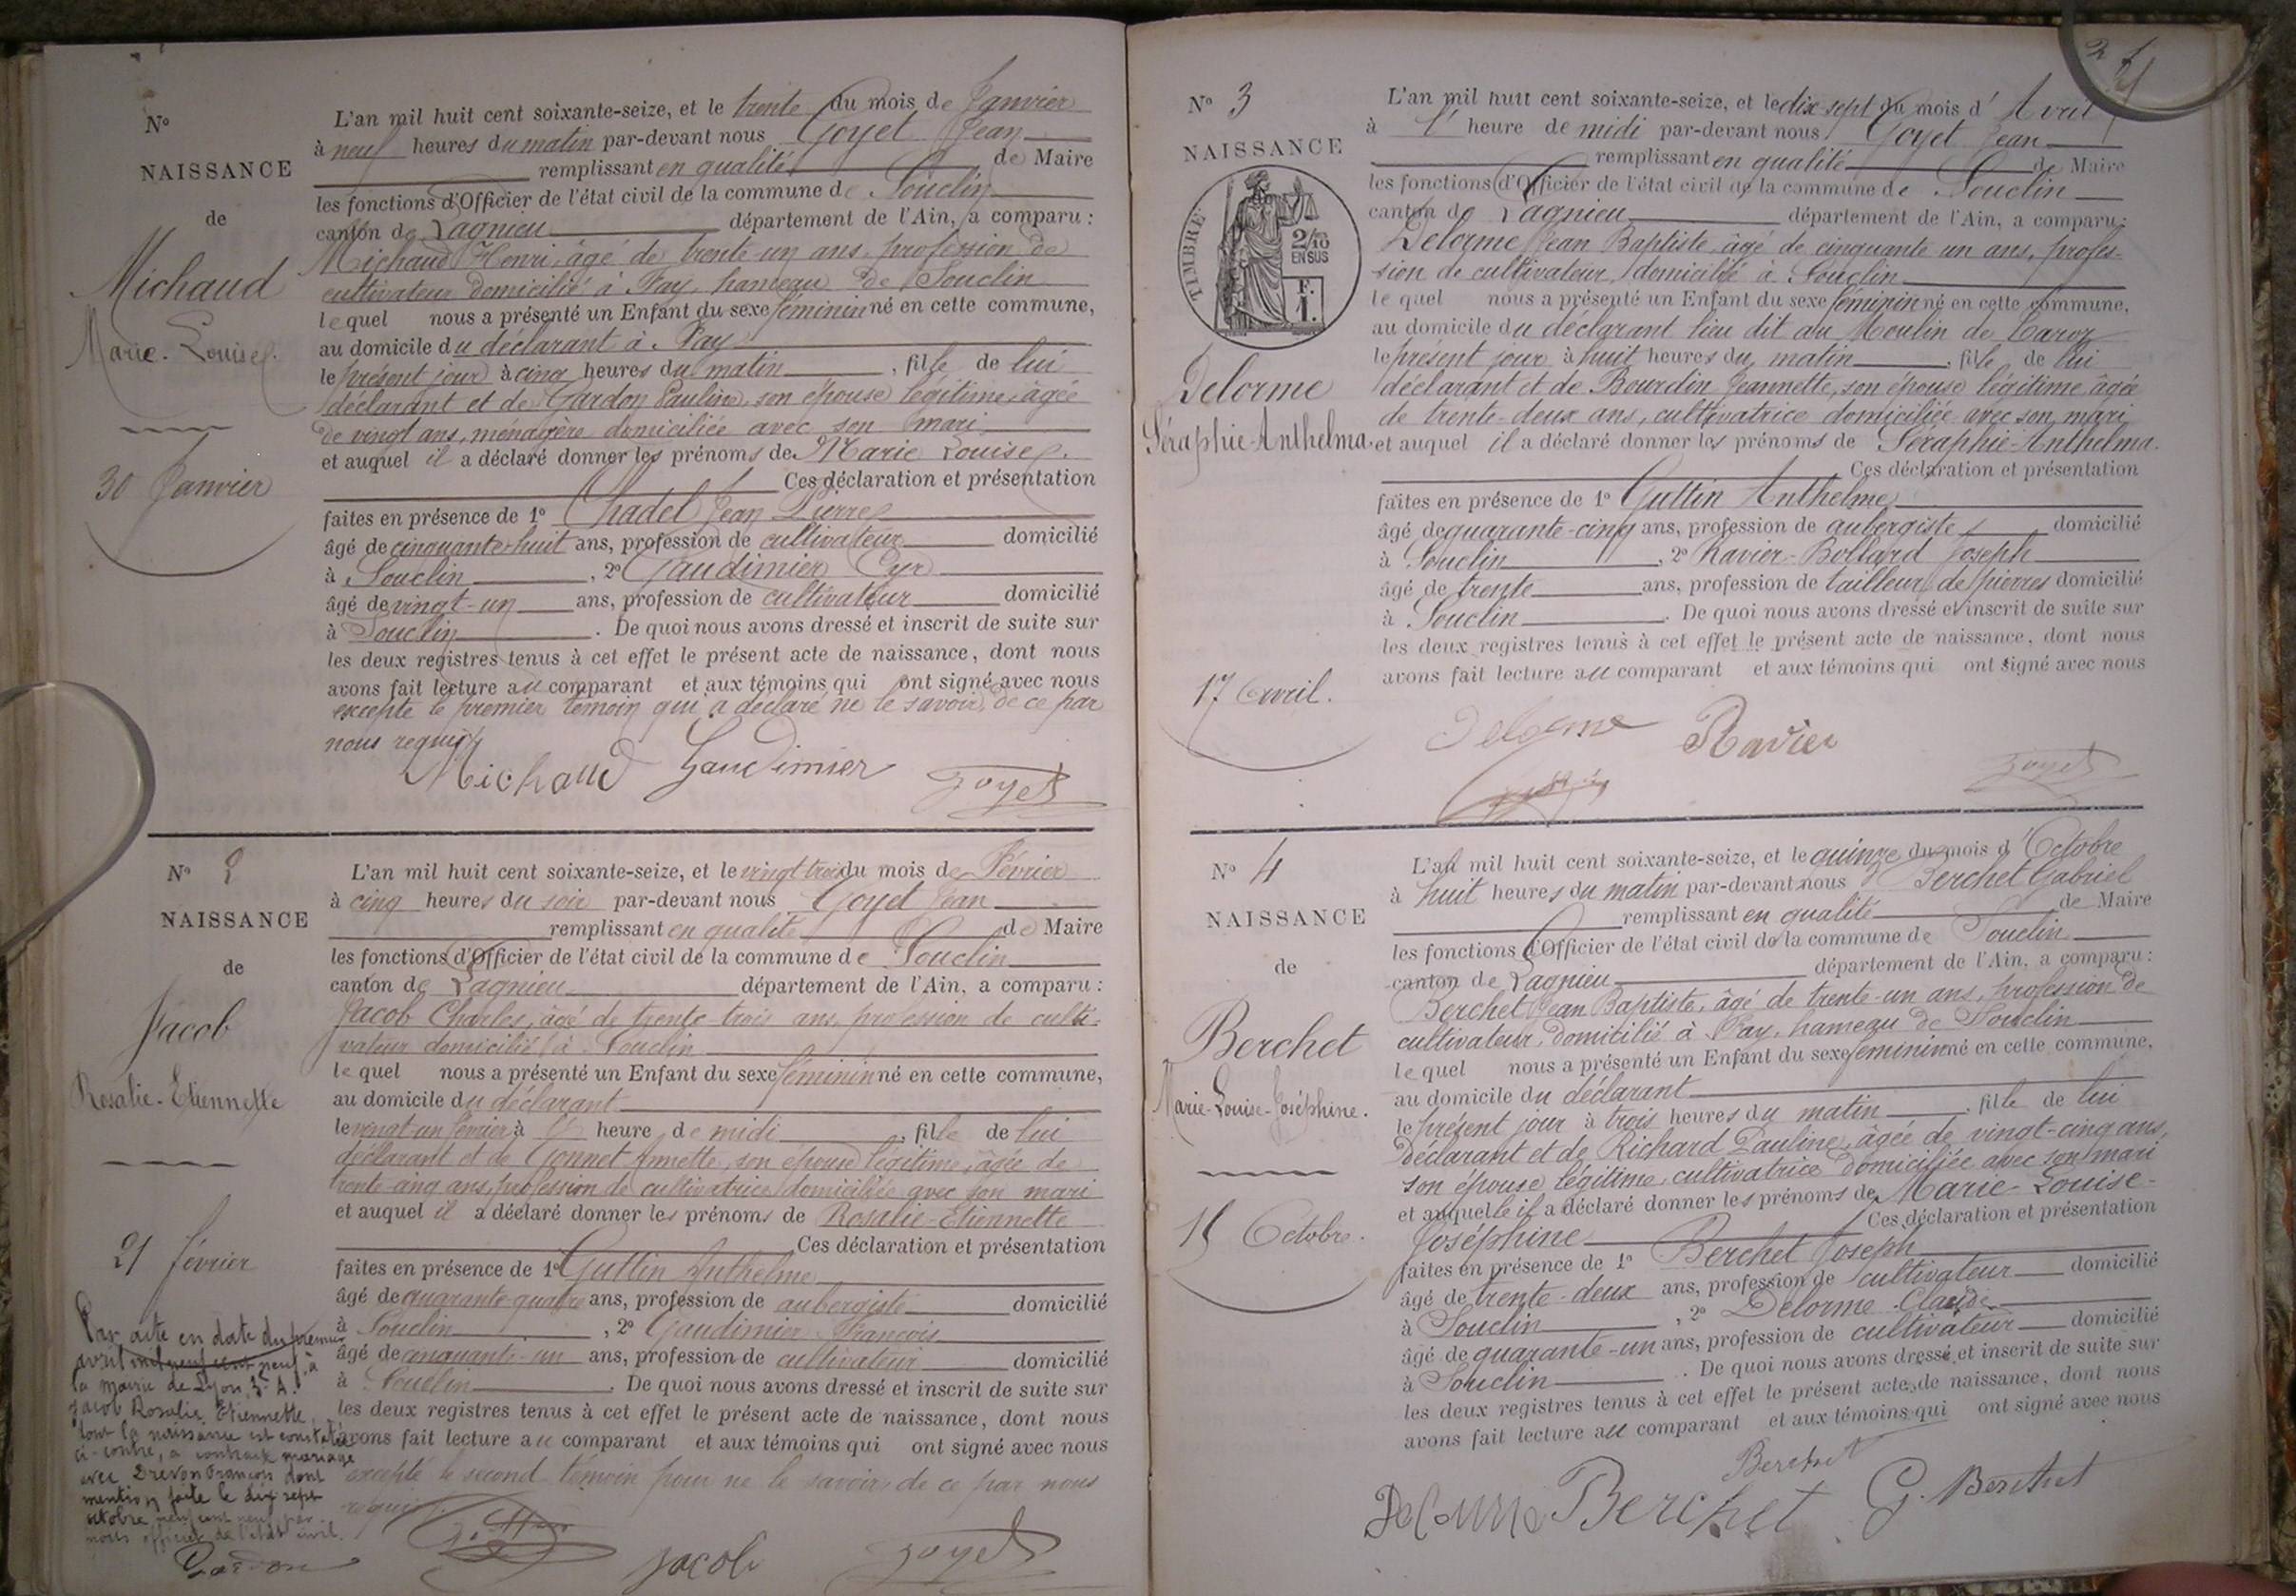 N°
NAISSANCE
de
Michaud
Marie-Louise.
30 Janvier
L'an mil huit cent soixante-seize, et le trente du mois de Janvier
à neuf heures du matin par-devant nous Goyet Jean
remplissant en qualité de Maire
les fonctions d'Officier de l'état civil de la commune de Souclin
canton de Lagnieu département de l'Ain, a comparu :
Michaud Henri, âgé de trente-un ans, profession de
cultivateur domicilié à Fay, hameau de Souclin
lequel nous a présenté un Enfant du sexe féminin né en cette commune,
au domicile du déclarant à Fay
le présent jour à cinq heures du matin, fille de lui
déclarant et de Gardon Pauline, son épouse légitime, âgée
de vingt ans, ménagère domiciliée avec son mari
et auquel il a déclaré donner les prénoms de Marie Louise.
Ces déclaration et présentation
faites en présence de 1° Chadel Jean Pierre
âgé de cinquante-huit ans, profession de cultivateur domicilié
à Souclin, 2° Gaudimier Cyr
âgé de vingt-un ans, profession de cultivateur domicilié
à Souclin. De quoi nous avons dressé et inscrit de suite sur
les deux registres tenus à cet effet le présent acte de naissance, dont nous
avons fait lecture au comparant et aux témoins qui ont signé avec nous
excepté le premier témoin qui a déclaré ne le savoir, de ce par
nous requis
Michaud Gaudimier Goyet
N° 2
NAISSANCE
de
Jacob
Rosalie-Etiennette
21 février
Par acte en date du premier
avril mil neuf cent neuf, à
la mairie de Lyon, 3e A.
Jacob Rosalie Etiennette,
dont la naissance est constatée
ci-contre, a contracté mariage
avec Drevon François dont
mention faite le dix sept
octobre neuf cent neuf par
nous officier de l'état civil.
L'an mil huit cent soixante-seize, et le vingt trois du mois de Février
à cinq heures du soir par-devant nous Goyet Jean
remplissant en qualité de Maire
les fonctions d'Officier de l'état civil de la commune de Souclin
canton de Lagnieu département de l'Ain, a comparu :
Jacob Charles, âgé de trente-trois ans, profession de culti-
vateur domicilié à Souclin
lequel nous a présenté un Enfant du sexe féminin né en cette commune,
au domicile du déclarant
le vingt un février à heure de midi, fille de lui
déclarant et de Gonnet Annette, son épouse légitime, âgée de
trente cinq ans, profession de cultivatrice domiciliée avec son mari
et auquel il a déclaré donner les prénoms de Rosalie-Etiennette
Ces déclaration et présentation
faites en présence de 1° Guttin Anthelme
âgé de quarante quatre ans, profession de aubergiste domicilié
à Souclin, 2° Gaudimier François
âgé de cinquante-un ans, profession de cultivateur domicilié
à Souclin. De quoi nous avons dressé et inscrit de suite sur
les deux registres tenus à cet effet le présent acte de naissance, dont nous
avons fait lecture au comparant et aux témoins qui ont signé avec nous
excepté le second témoin pour ne le savoir, de ce par nous
requis.
Jacob Goyet
N° 3
NAISSANCE
TIMBRE
2/10 EN SUS
F. 1.
Delorme
Séraphie-Anthelma.
17 Avril.
L'an mil huit cent soixante-seize, et le dix-sept du mois d'Avril
à 1 heure de midi par-devant nous Goyet Jean
remplissant en qualité de Maire
les fonctions d'Officier de l'état civil de la commune de Souclin
canton de Lagnieu département de l'Ain, a comparu :
Delorme Jean Baptiste, âgé de cinquante un ans, profes-
sion de cultivateur, domicilié à Souclin
lequel nous a présenté un Enfant du sexe féminin né en cette commune,
au domicile du déclarant lieu dit au Moulin de Caroz
le présent jour à huit heures du matin, fille de lui
déclarant et de Bourdin Jeannette, son épouse légitime âgée
de trente-deux ans, cultivatrice domiciliée avec son mari
et auquel il a déclaré donner les prénoms de Séraphie-Anthelma.
Ces déclaration et présentation
faites en présence de 1° Guttin Anthelme
âgé de quarante-cinq ans, profession de aubergiste domicilié
à Souclin, 2° Ravier-Bollard Joseph
âgé de trente ans, profession de tailleur de pierres domicilié
à Souclin. De quoi nous avons dressé et inscrit de suite sur
les deux registres tenus à cet effet le présent acte de naissance, dont nous
avons fait lecture au comparant et aux témoins qui ont signé avec nous
Delorme Ravier
Goyet
N° 4
NAISSANCE
de
Berchet
Marie-Louise-Joséphine.
15 Octobre.
L'an mil huit cent soixante-seize, et le quinze du mois d'Octobre
à huit heures du matin par-devant nous Berchet Gabriel
remplissant en qualité de Maire
les fonctions d'Officier de l'état civil de la commune de Souclin
canton de Lagnieu département de l'Ain, a comparu :
Berchet Jean Baptiste, âgé de trente-un ans, profession de
cultivateur, domicilié à Fay, hameau de Souclin
lequel nous a présenté un Enfant du sexe féminin né en cette commune,
au domicile du déclarant
le présent jour à trois heures du matin, fille de lui
déclarant et de Richard Pauline, âgée de vingt-cinq ans,
son épouse légitime, cultivatrice domiciliée avec son mari
et auquelle il a déclaré donner les prénoms de Marie-Louise-
Joséphine Ces déclaration et présentation
faites en présence de 1° Berchet Joseph
âgé de trente-deux ans, profession de cultivateur domicilié
à Souclin, 2° Delorme Claude
âgé de quarante-un ans, profession de cultivateur domicilié
à Souclin. De quoi nous avons dressé et inscrit de suite sur
les deux registres tenus à cet effet le présent acte de naissance, dont nous
avons fait lecture au comparant et aux témoins qui ont signé avec nous
Berchet
Delorme Berchet G. Berchet